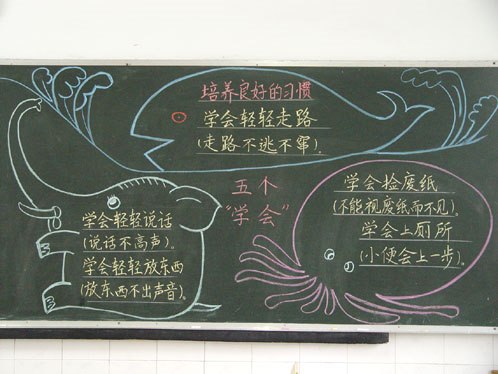 培养良好的习惯
学会轻轻走路
(走路不逃不窜)。
五个
"学会"
学会轻轻说话
(说话不高声)。
学会轻轻放东西
(放东西不出声音)。
学会捡废纸
(不能视废纸而不见)。
学会上厕所
(小便会上一步)。